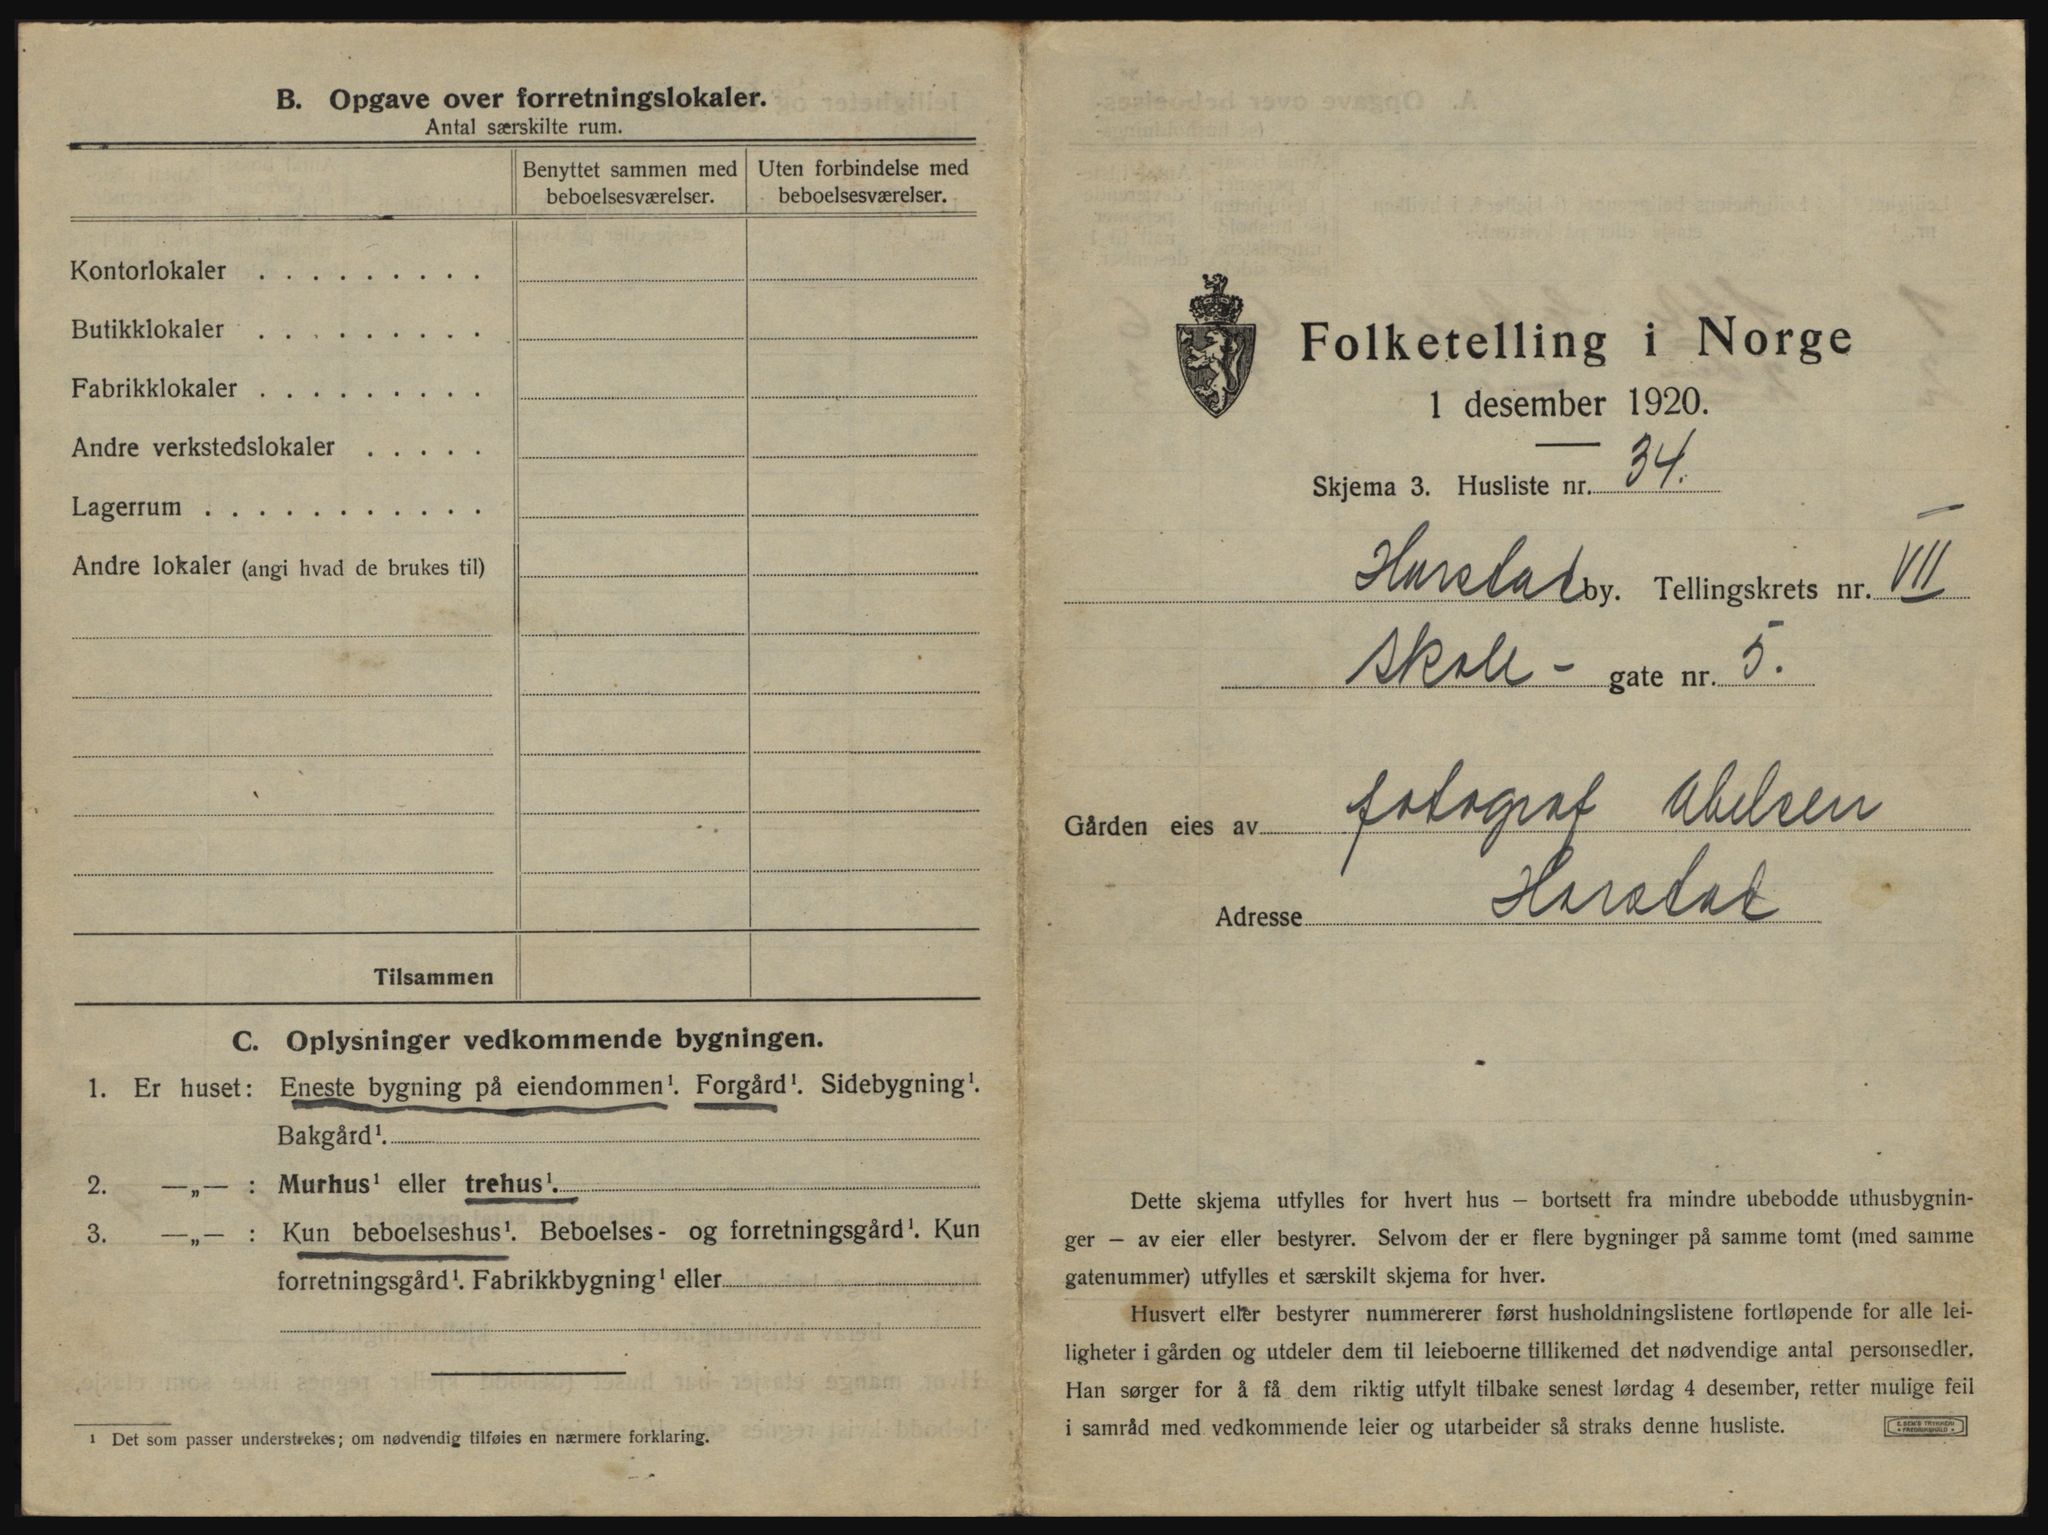 B. Opgave over forretningslokaler.
Antal særskilte rum.
Benyttet sammen med beboelsesværelser.
Uten forbindelse med beboelsesværelser.
Kontorlokaler . . . . . . . . .
Butikklokaler . . . . . . . . .
Fabrikklokaler . . . . . . . . .
Andre verkstedslokaler . . . . .
Lagerrum . . . . . . . . . . . .
Andre lokaler (angi hvad de brukes til)
Tilsammen
C. Oplysninger vedkommende bygningen.
1. Er huset: Eneste bygning på eiendommen¹. Forgård¹. Sidebygning¹.
Bakgård¹.
2. —„— : Murhus¹ eller trehus¹.
3. —„— : Kun beboelseshus¹. Beboelses- og forretningsgård¹. Kun
forretningsgård¹. Fabrikkbygning¹ eller
¹ Det som passer understrekes; om nødvendig tilføies en nærmere forklaring.
Folketelling i Norge
1 desember 1920.
Skjema 3. Husliste nr. 34.
Harstad by. Tellingskrets nr. VII
Skole - gate nr. 5.
Gården eies av fotograf Abelsen
Adresse Harstad
Dette skjema utfylles for hvert hus – bortsett fra mindre ubebodde uthusbygnin-
ger – av eier eller bestyrer. Selvom der er flere bygninger på samme tomt (med samme
gatenummer) utfylles et særskilt skjema for hver.
Husvert eller bestyrer nummererer først husholdningslistene fortløpende for alle lei-
ligheter i gården og utdeler dem til leieboerne tillikemed det nødvendige antal personsedler.
Han sørger for å få dem riktig utfylt tilbake senest lørdag 4 desember, retter mulige feil
i samråd med vedkommende leier og utarbeider så straks denne husliste.
E. SEM'S TRYKKERI
FREDRIKSHALD